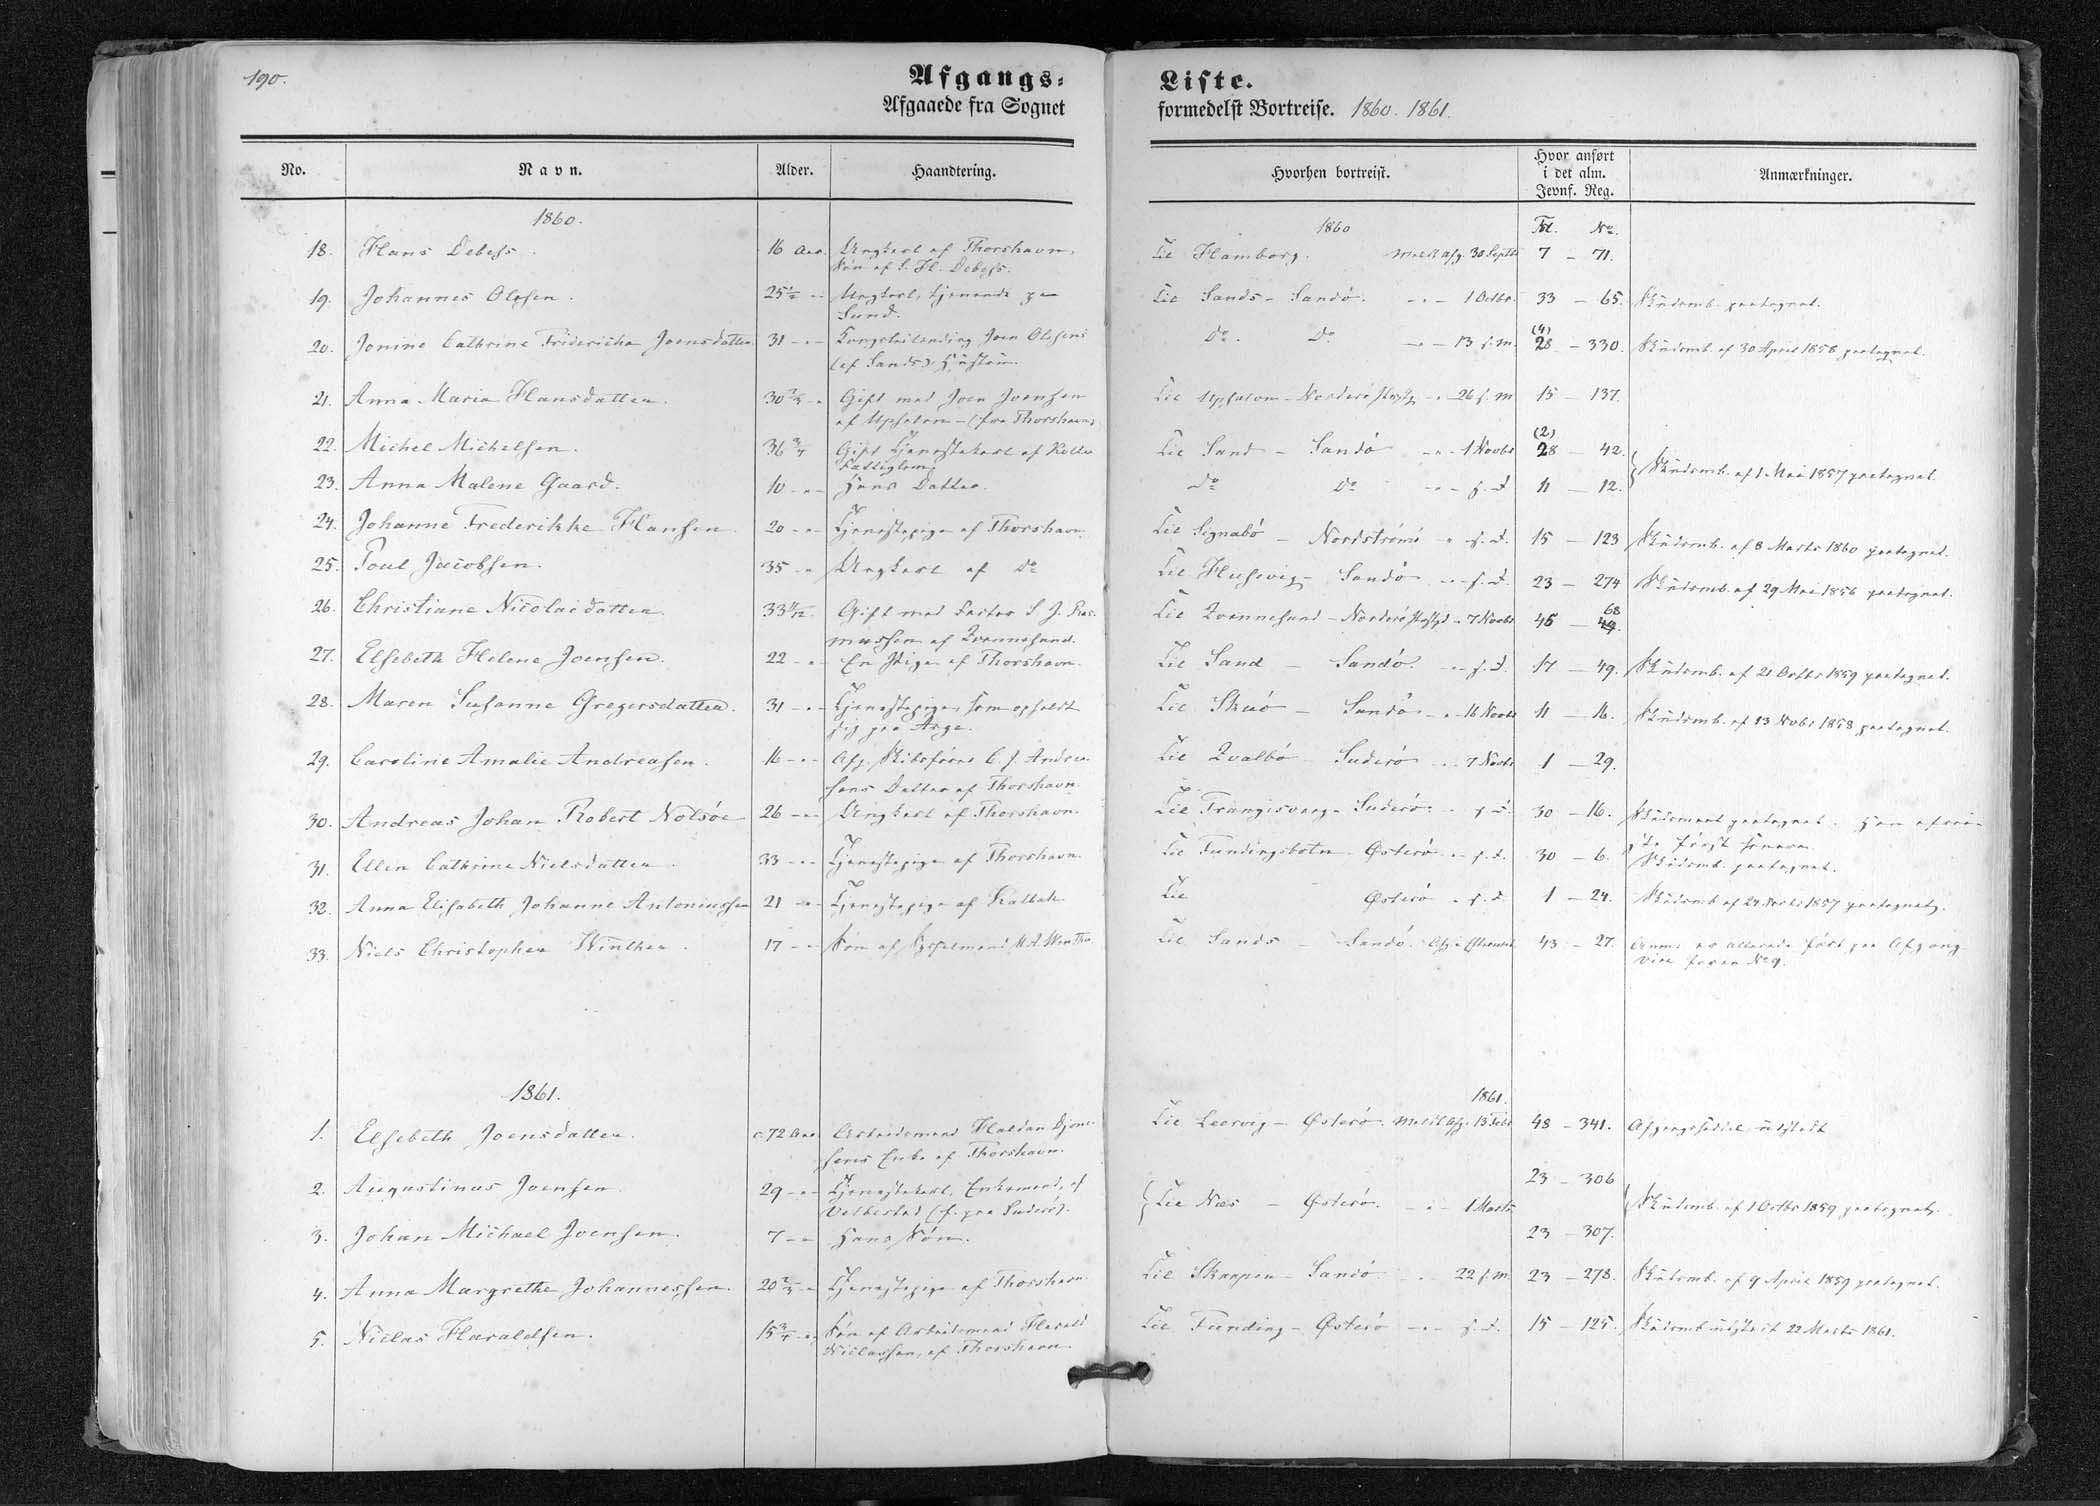 190.
Afgangs-
Afgaaede fra Sognet
Liste.
formedelst Bortreise. 1860. 1861.
No. Navn. Alder. Haandtering. Hvorhen bortreist. Hvor anført i det alm. Jevnf. Reg. Anmærkninger.
1860. 1860 Fol. No.
18. Hans Debess. 16 Aar. Ungkarl af Thorshavn, Til Hamborg. Meldt afg. 30 Septb 7 – 71.
Søn af S. H. Debess.
19. Johannes Olesen. 25 1/2 -"- Ungkarl, tjenende paa Til Sands – Sandö. -"- 1 Octbr. 33 – 65. Skudsmb. paategnet.
Sund.
20. Jonine Cathrine Fridericha Joensdatter 31 -"- Joen Olesens Do. Do -"- 13 s.m. (4) 28 – 330. Skudsmb. af 30 April 1858 paategnet.
(af Sand) Hustru.
21. Anna Maria Hansdatter. Gift med Joen Joensen Til – Norderö -"- 26 s.m 15 – 137.
af – (fra Thorshavn)
22. Michel Michelsen. 36 3/4 Gift Tjenestekarl af Til Sand – Sandö -"- 1 Novbr (2) 28 – 42. Skudsmb. af 1 Mai 1857 paategnet.
23. Anna Malene Gaard. 10 -"- Hans Datter. Do Do -"- s.d. 11 – 12.
24. Johanne Frederikke Hansen 20 -"- Tjenestepige af Thorshavn. Til Signabö – Nordströmö -"- s.d. 15 – 123 Skudsmb. af 8 Marts 1860 paategnet.
25. Poul Jacobsen. 35 -"- Ungkarl af Do Til Husevig – Sandö -"- s.d. 23 – 274 Skudsmb. af 29 Mai 1856 paategnet.
26. Christiane Nicolaidatter 33 11/12. Gift med Fæster S. J. Ras- Til Qvannesund – Norderö -"- 7 Novbr 45 – 68
mussen af Qvannesund.
27. Elsebeth Helene Joensen. 22 -"- En Pige af Thorshavn. Til Sand – Sandö. -"- s.d. 17 – 49. Skudsmb. af 21 Octbr 1859 paategnet.
28. Maren Susanne Gregersdatter. 31 -"- Tjenestepige, som opholdt Til Skuö – Sandö -"- 16 Novbr 11 – 16. Skudsmb. af 13 Novbr 1858 paategnet.
sig paa Arge.
29. Caroline Amalie Andreasen. 16 -"- Afg. Skibsförer C. J. Andrea- Til Qvalbö – Suderö -"- 7 Novbr 1 – 29.
sens Datter af Thorshavn.
30. Andreas Johan Robert Nolsöe 26 -"- Ungkarl af Thorshavn. Til Trangisvaag – Suderö -"- s.d. 30 – 16. Skudsmaal paategnet. Han afrei-
ste först
31. Ellen Cathrine Nielsdatter. 33 -"- Tjenestepige af Thorshavn. Til Fundingsbotn – Østerö -"- s.d. 30 – 6. Skudsmb. paategnet.
32. Anna Elisabeth Johanne Antoniussen 21 -"- Tjenestepige af Kalbak Til Østerö -"- s.d. 1 – 24. Skudsmb. af 24 Marts 1857 paategnet.
33. Niels Christopher Winther. 17 -"- Søn af Sysselmand M. A. Winther. Til Sands – Sandö. 43 – 27. Anm: er allerede fört paa Afgang
No 9.
1861. 1861.
1. Elsebeth Joensdatter. c. 72 Aar Arbeidsmand Haldan Djone- Til Leervig – Østerö. Meldt Afg. 13 Febr 48 – 341. Afgangsseddel udstedt
sens Enke af Thorshavn.
2. Augustinus Joensen 29 -"- Tjenestekarl, Enkemand, af 23 – 306
Velbestad (f. paa Suderö). Til Næs – Østerö. -"- 1 Marts Skudsmb. af 1 Octbr 1859 paategnet.
3. Johan Michael Joensen. 7 -"- Hans Søn. 23 – 307.
4. Anna Margrethe Johannessen. Tjenestepige af Thorshavn. Til Skaapen – Sandö -"- 22 s.m. 23 – 278. Skudsmb. af 9 April 1859 paategnet.
5. Niclas Haraldsen. 15 3/4 -"- Søn af Arbeidsmand Harald Til Funding – Østerö -"- s.d. 15 – 125. Skudsmb. udstedt 22 Marts 1861.
Niclassen, af Thorshavn.